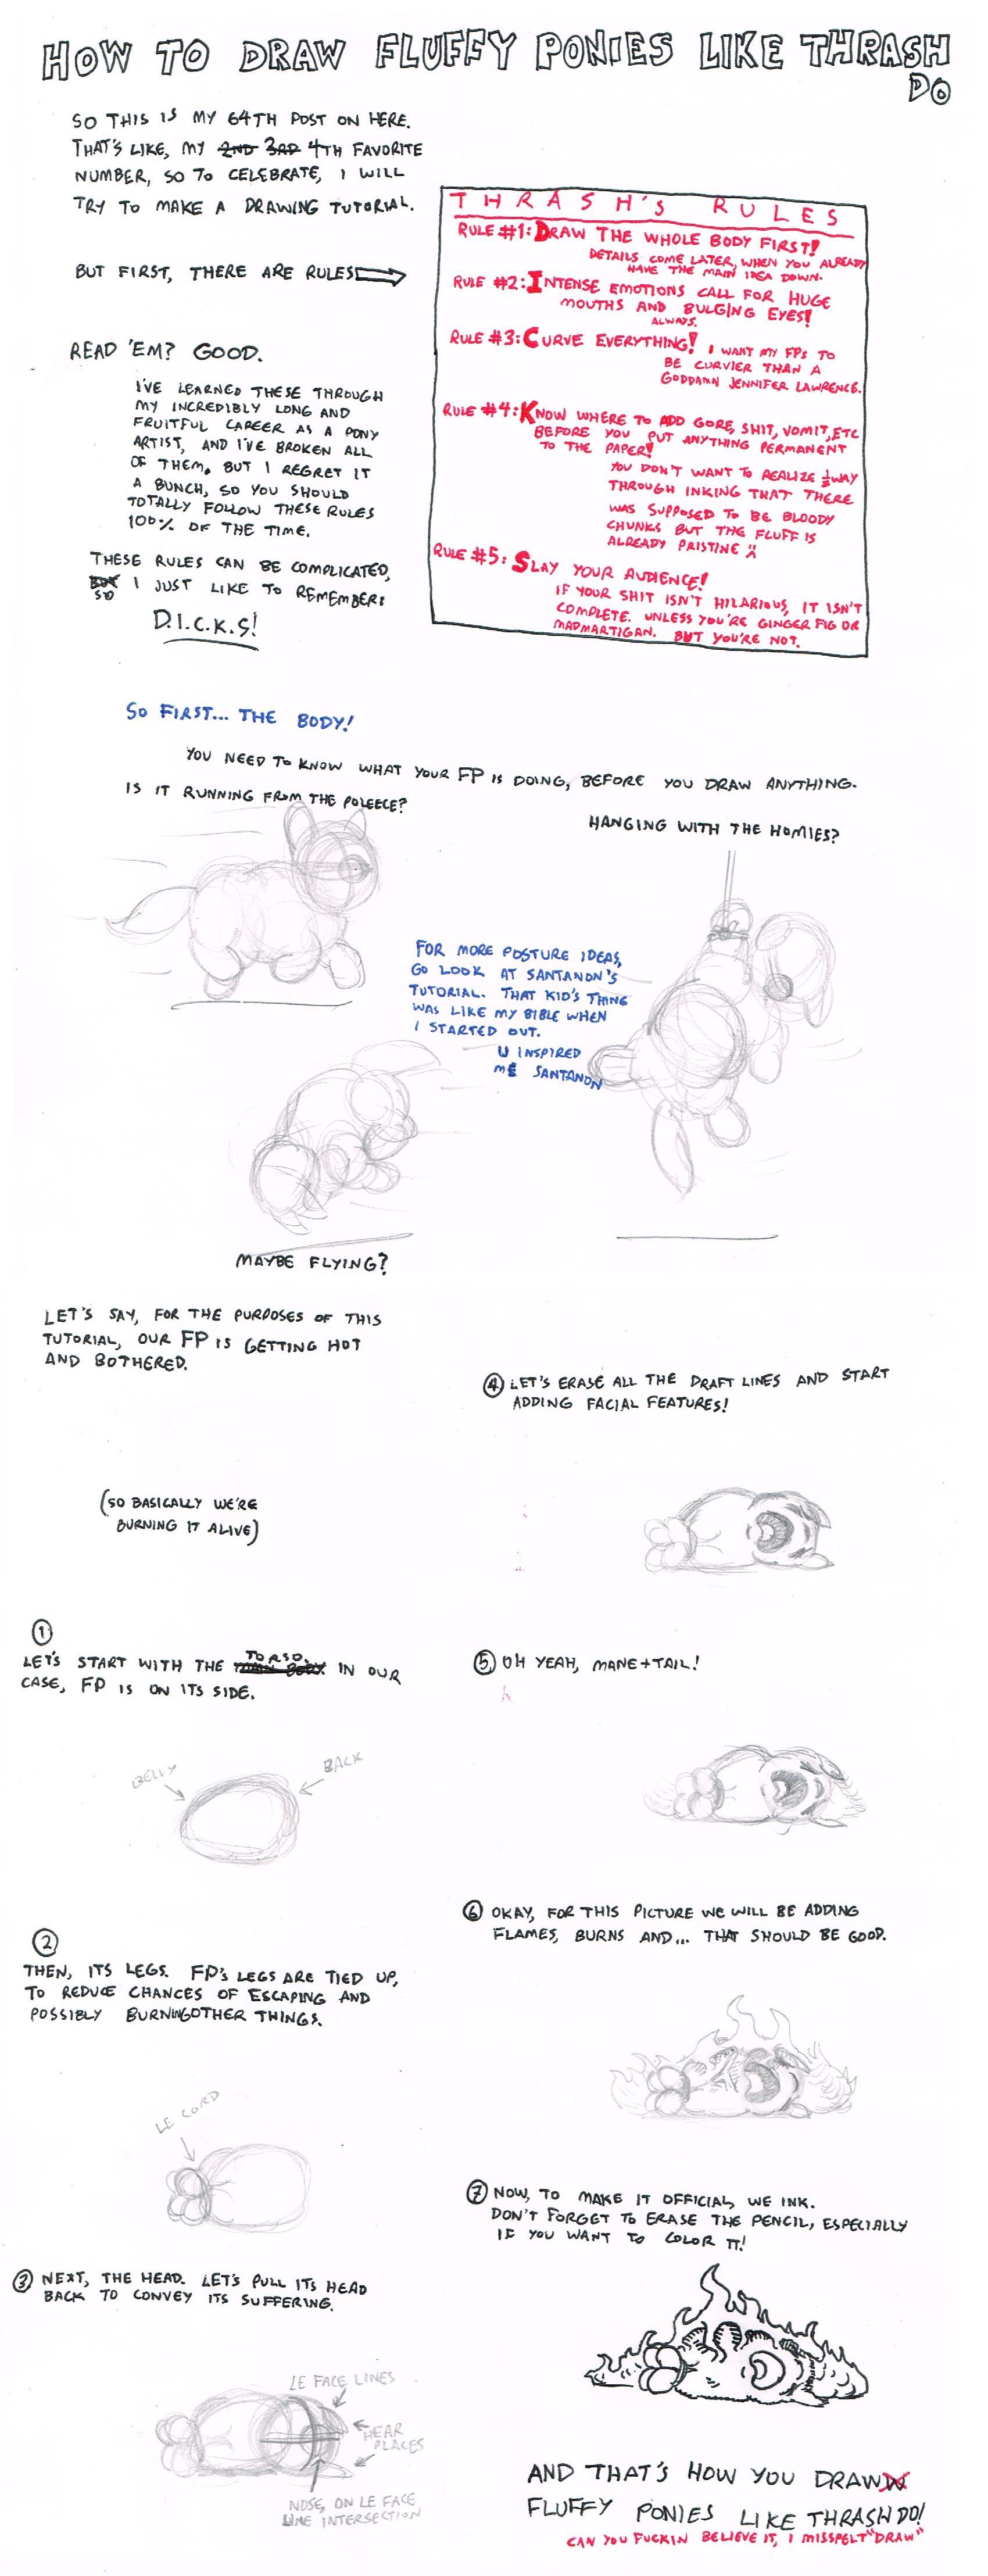 HOW TO DRAW FLUFFY PONIES LIKE THRASH
DO
SO THIS IS MY 64TH POST ON HERE.
THAT'S LIKE, MY 2ND 3RD 4TH FAVORITE
NUMBER, SO TO CELEBRATE, I WILL
TRY TO MAKE A DRAWING TUTORIAL.
BUT FIRST, THERE ARE RULES
THRASH'S RULES
RULE #1: DRAW THE WHOLE BODY FIRST!
DETAILS COME LATER, WHEN YOU ALREADY
HAVE THE MAIN IDEA DOWN.
RULE #2: INTENSE EMOTIONS CALL FOR HUGE
MOUTHS AND BULGING EYES!
ALWAYS.
RULE #3: CURVE EVERYTHING! I WANT MY FPS TO
BE CURVIER THAN A
GODDAMN JENNIFER LAWRENCE.
RULE #4: KNOW WHERE TO ADD GORE, SHIT, VOMIT, ETC
BEFORE YOU PUT ANYTHING PERMANENT
TO THE PAPER!
YOU DON'T WANT TO REALIZE ½WAY
THROUGH INKING THAT THERE
WAS SUPPOSED TO BE BLOODY
CHUNKS BUT THE FLUFF IS
ALREADY PRISTINE
RULE #5: SLAY YOUR AUDIENCE!
IF YOUR SHIT ISN'T HILARIOUS, IT ISN'T
COMPLETE. UNLESS YOU'RE GINGER FIG OR
MADMARTIGAN. BUT YOU'RE NOT.
READ 'EM? GOOD.
I'VE LEARNED THESE THROUGH
MY INCREDIBLY LONG AND
FRUITFUL CAREER AS A PONY
ARTIST, AND I'VE BROKEN ALL
OF THEM. BUT I REGRET IT
A BUNCH, SO YOU SHOULD
TOTALLY FOLLOW THESE RULES
100% OF THE TIME.
THESE RULES CAN BE COMPLICATED,
SO I JUST LIKE TO REMEMBER:
D.I.C.K.S!
SO FIRST... THE BODY!
YOU NEED TO KNOW WHAT YOUR FP IS DOING, BEFORE YOU DRAW ANYTHING.
IS IT RUNNING FROM THE POLEECE?
HANGING WITH THE HOMIES?
FOR MORE POSTURE IDEAS,
GO LOOK AT SANTANON'S
TUTORIAL. THAT KID'S THING
WAS LIKE MY BIBLE WHEN
I STARTED OUT.
U INSPIRED
ME SANTANON
MAYBE FLYING?
LET'S SAY, FOR THE PURPOSES OF THIS
TUTORIAL, OUR FP IS GETTING HOT
AND BOTHERED.
(SO BASICALLY WE'RE
BURNING IT ALIVE)
1
LET'S START WITH THE TORSO. IN OUR
CASE, FP IS ON ITS SIDE.
BELLY
BACK
2
THEN, ITS LEGS. FP'S LEGS ARE TIED UP,
TO REDUCE CHANCES OF ESCAPING AND
POSSIBLY BURNINGOTHER THINGS.
LE CORD
3 NEXT, THE HEAD. LET'S PULL ITS HEAD
BACK TO CONVEY ITS SUFFERING.
LE FACE LINES
HEAR
PLACES
NOSE, ON LE FACE
LINE INTERSECTION
4 LET'S ERASE ALL THE DRAFT LINES AND START
ADDING FACIAL FEATURES!
5 OH YEAH, MANE+TAIL!
6 OKAY, FOR THIS PICTURE WE WILL BE ADDING
FLAMES, BURNS AND... THAT SHOULD BE GOOD.
7 NOW, TO MAKE IT OFFICIAL, WE INK.
DON'T FORGET TO ERASE THE PENCIL, ESPECIALLY
IF YOU WANT TO COLOR IT!
AND THAT'S HOW YOU DRAWW
FLUFFY PONIES LIKE THRASH DO!
CAN YOU FUCKIN BELIEVE IT, I MISSPELT "DRAW"